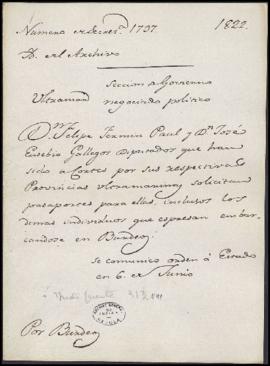 1822.
Numero 1797.
D. el Archivo
Seccion Govierno
Ultramar negociado politico
Dn. Felipe Fermin Paul y Dn. José
Eusebio Gallegos Diputados que han
sido a Cortes por sus respectivas
Provincias Ultramarinas solicitan
pasaportes para ellas, inclusos los
demas individuos que espresan embar-
candose en Burdeos.
se comunico orden á Estado
en 6. de Junio
313
ARCHIVO GENERAL
DE INDIAS
SEVILLA
Por Burdeos